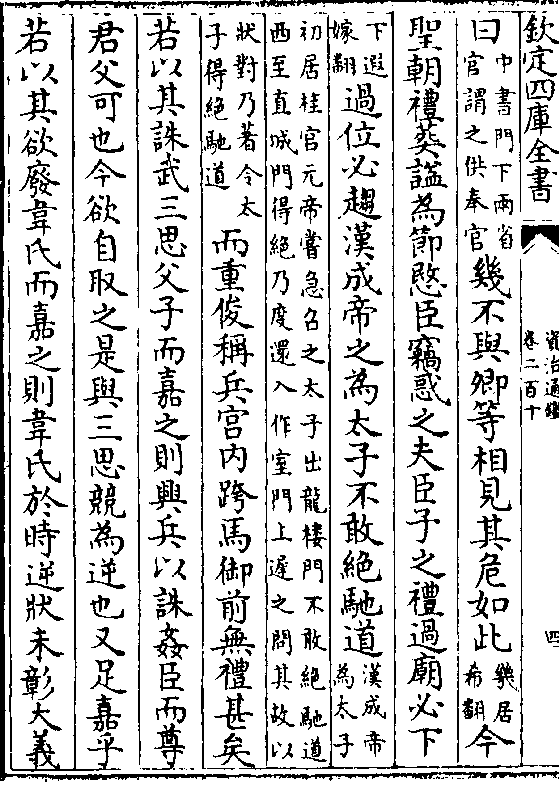 欽定四庫全書
資治通鑑
卷二百十
四
曰
中書門下兩省
官謂之供奉官
幾不與卿等相見其危如此
幾居
希翻
今
聖朝禮葬諡為節愍臣竊惑之夫臣子之禮過廟必下
下遐
嫁翻
過位必趨漢成帝之為太子不敢絕馳道
漢成帝
為太子
初居桂宫元帝嘗急召之太子出龍樓門不敢絕馳道
西至直城門得絕乃度還入作室門上遲之問其故以
狀對乃著令太
子得絕馳道
而重俊稱兵宫内跨馬御前無禮甚矣
若以其誅武三思父子而嘉之則興兵以誅姦臣而尊
君父可也今欲自取之是與三思競為逆也又足嘉乎
若以其欲廢韋氏而嘉之則韋氏於時逆狀未彰大義